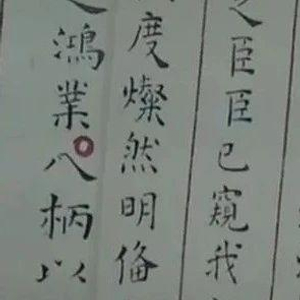 之臣臣已窺我
度燦然明俻
鴻業八柄以